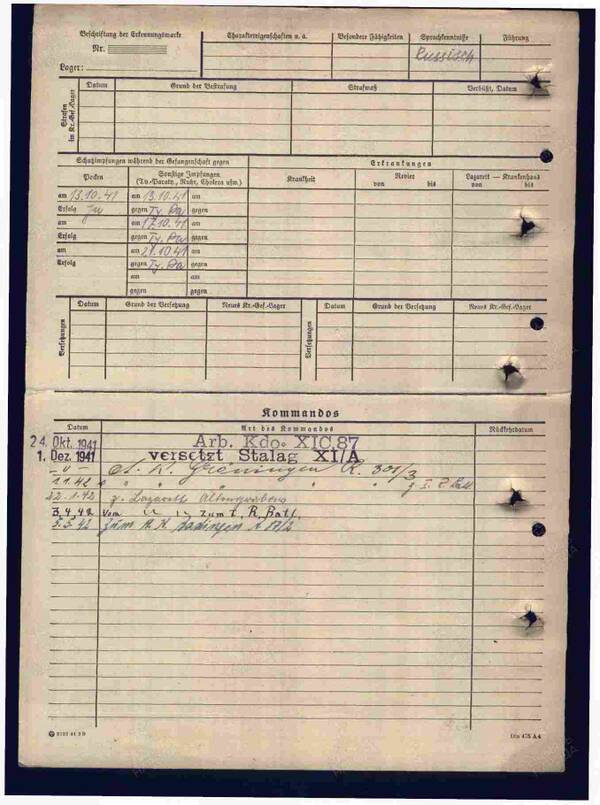 Beschriftung der Erkennungsmarke
Nr.
Lager:
Charaktereigenschaften u. a.
Besondere Fähigkeiten
Sprachkenntnisse
Führung
Russisch
Strafen im Kr.-Gef.-Lager
Datum
Grund der Bestrafung
Strafmaß
Verbüßt, Datum
Schutzimpfungen während der Gefangenschaft gegen
Erkrankungen
Pocken
Sonstige Impfungen
(Ty.-Paraty., Ruhr, Cholera usw.)
Krankheit
Revier
von bis
Lazarett — Krankenhaus
von bis
am 13.10.41 am 13.10.41 am
Erfolg gegen Ty. Pa gegen
am am 17.10.41 am
Erfolg gegen Ty. Pa gegen
am am 21.10.41 am
Erfolg gegen Ty. Pa gegen
am am
gegen gegen
Versetzungen
Datum
Grund der Versetzung
Neues Kr.-Gef.-Lager
Versetzungen
Datum
Grund der Versetzung
Neues Kr.-Gef.-Lager
Kommandos
Datum
Art des Kommandos
Rückkehrdatum
24. Okt. 1941 Arb. Kdo. XIC 87
1. Dez. 1941 versetzt Stalag XI/A
A. K. Gröningen R. 301/3
1.1.42
22.1.42 z. Lazarett Altengrabow
3.4.42 vom zum R. Batl.
3.5.42 zum A. K.
Din 476 A 4